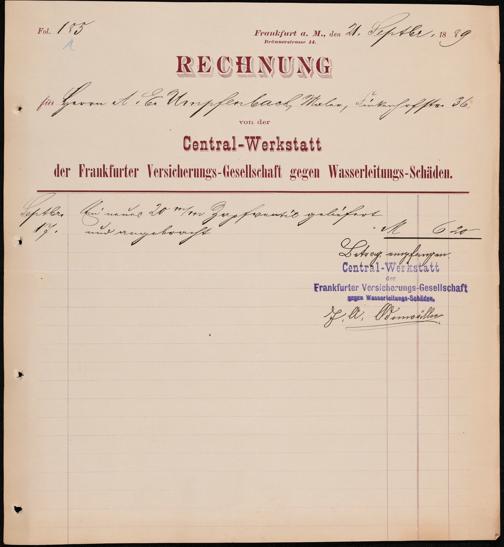 Fol. 185
Frankfurt a. M., den 21. Septbr. 1889
Brönnerstrasse 14.
RECHNUNG
für Herrn A. E. Umpfenbach, Maler, 36
von der
Central-Werkstatt
der Frankfurter Versicherungs-Gesellschaft gegen Wasserleitungs-Schäden.
Septbr. Ein neues 20 m/m Zapfventil geliefert
17. und angebracht M 6 20
Betrag empfangen.
Central-Werkstatt
der
Frankfurter Versicherungs-Gesellschaft
gegen Wasserleitungs-Schäden.